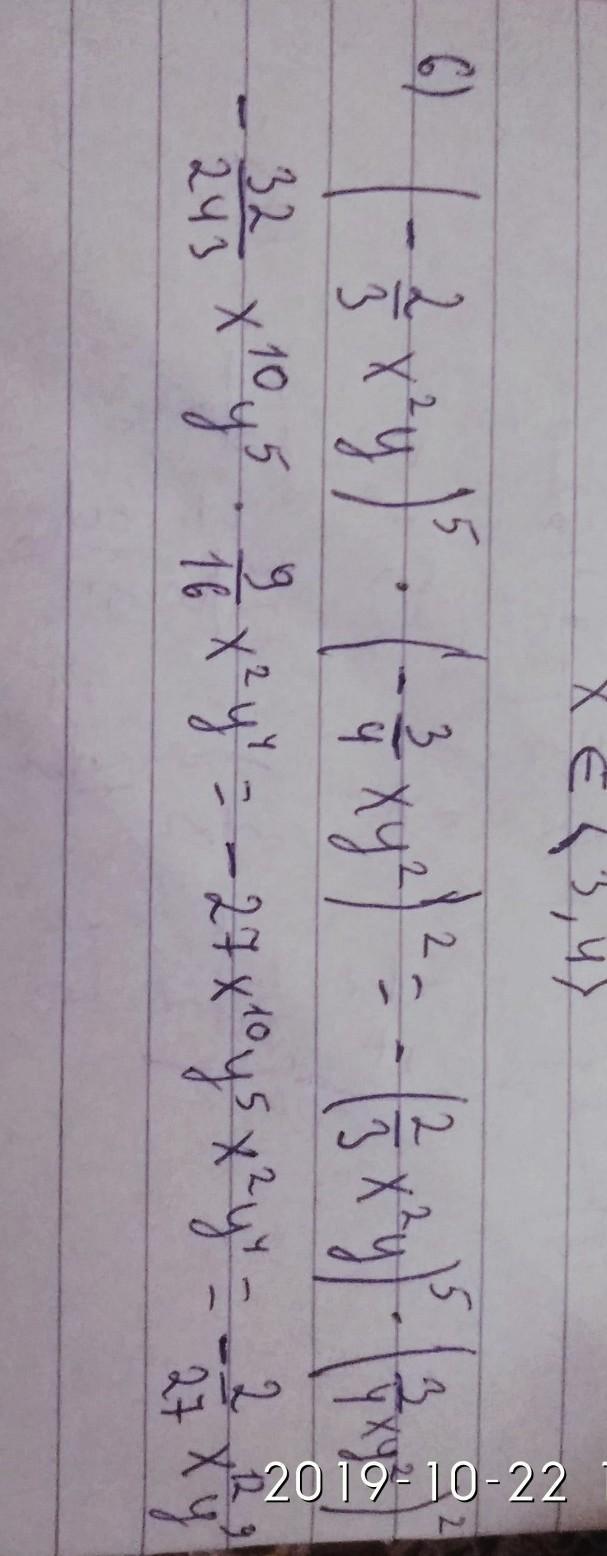 x ∈ {3,4}
6) (-2/3 x²y)⁵ · (-3/4 xy²)² = -(2/3 x²y)⁵ · (3/4 xy²)²
-32/243 x¹⁰y⁵ · 9/16 x²y⁴ = -27x¹⁰y⁵x²y⁴ = -2/27 x¹²y⁹
2019-10-22